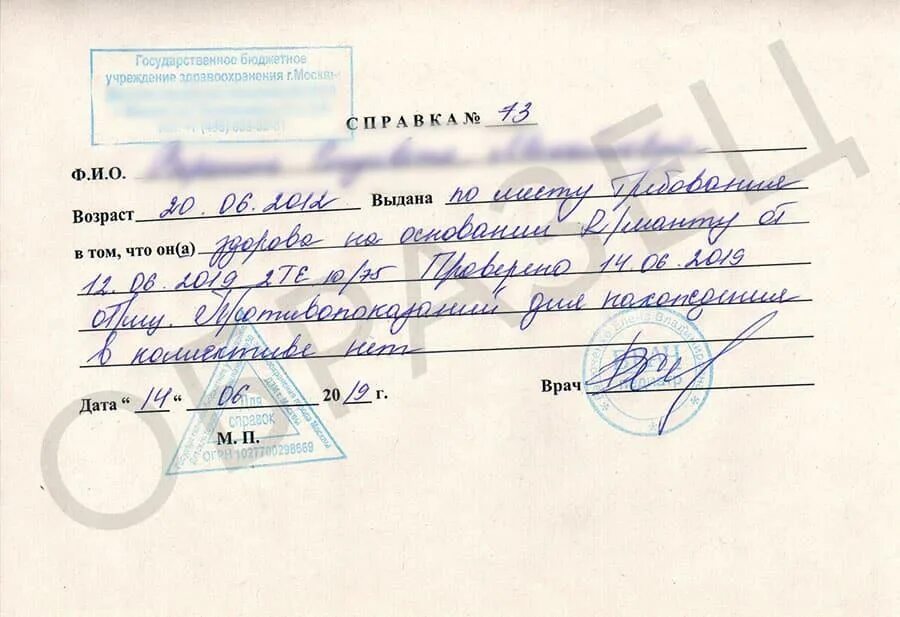 Государственное бюджетное
учреждение здравоохранения г.Москвы
СПРАВКА № 73
Ф.И.О.
Возраст 20.06.2012 Выдана по месту Требования
в том, что он(а) здорова на основании R/манту от
12.06.2019 2ТЕ Проверено 14.06.2019
отриц. Противопоказаний для нахождения
в коллективе нет
Дата “ 14 “ 06 2019 г.
Врач
ВРАЧ
Для
справок
М. П.
ОГРН 1027700298669
ОБРАЗЕЦ